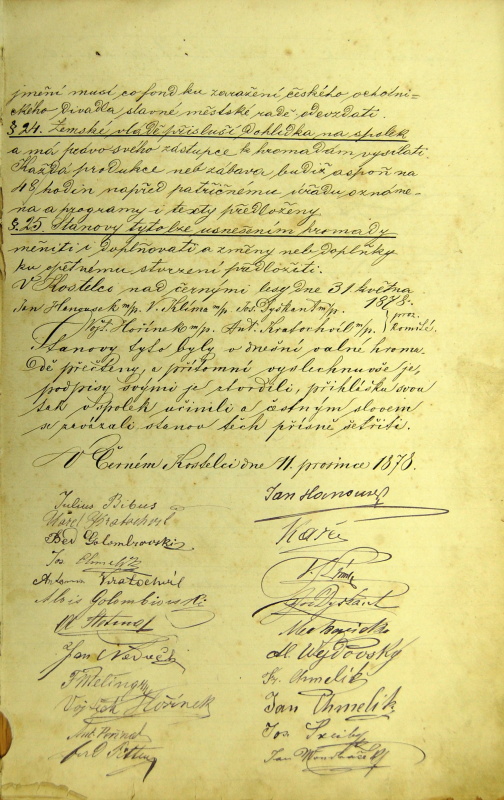 jmění musí co fond ku zaražení českého ochotni-
ckého divadla slavné městské radě odevzdati.
§ 24. Zemské vládě přísluší dohledka na spolek
a má právo svého zástupce k hromadám vysílati.
Každá produkce neb zábava budiž aspoň na
48 hodin napřed patřičnému úřadu oznáme-
na a programy i texty předloženy.
§ 25. Stanovy tyto lze usnešením hromady
měniti i doplňovati a změny neb doplňky
ku opětnému stvrzení předložiti.
V Kostelci nad černými lesy dne 31 května
1878.
Jan Hanousek m/p. V. Klíma m/p. Jos. Dyškant m/p.
Vojt. Hořínek m/p. Ant. Kratochvíl m/p. proz. komité.
Stanovy tyto byly v dnešní valné hroma-
dě přečteny, a přítomní vyslechnuvše je,
podpisy svými je stvrdili, přihlášku svou
tak v spolek učinili a čestným slovem
se zavázali stanov těch přísně šetřiti.
V Černém Kostelci dne 11. prosince 1878.
Jan Hanousek
Julius Bibus
Karel Kratochvíl
Bed Golombovski
Jos Chmelík
Antonín Kratochvíl
Alois Golombiovski
Jan
Vojtěch Hořínek
Jos Dyškant
Al. Wojdovský
Fr. Chmelík
Jan Chmelík
Jos
Jan